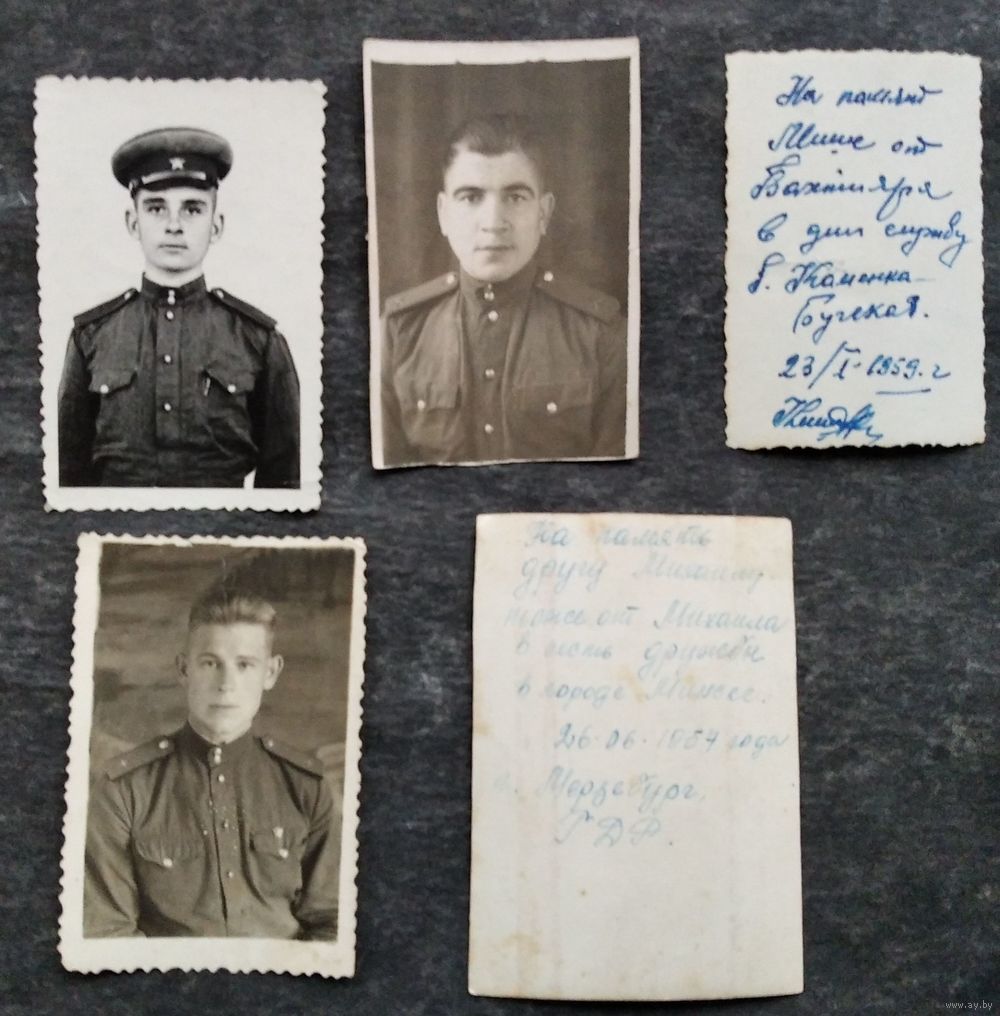 На память
Мише от
Бахтияра
в дни службу
г. Каменка-
Бугская.
23/I-1959. г
На память
другу Михаилу
тоже от Михаила
в честь дружбы
в городе Минске.
26.06.1957 года
г. Мерзебург.
ГДР.
www.ay.by